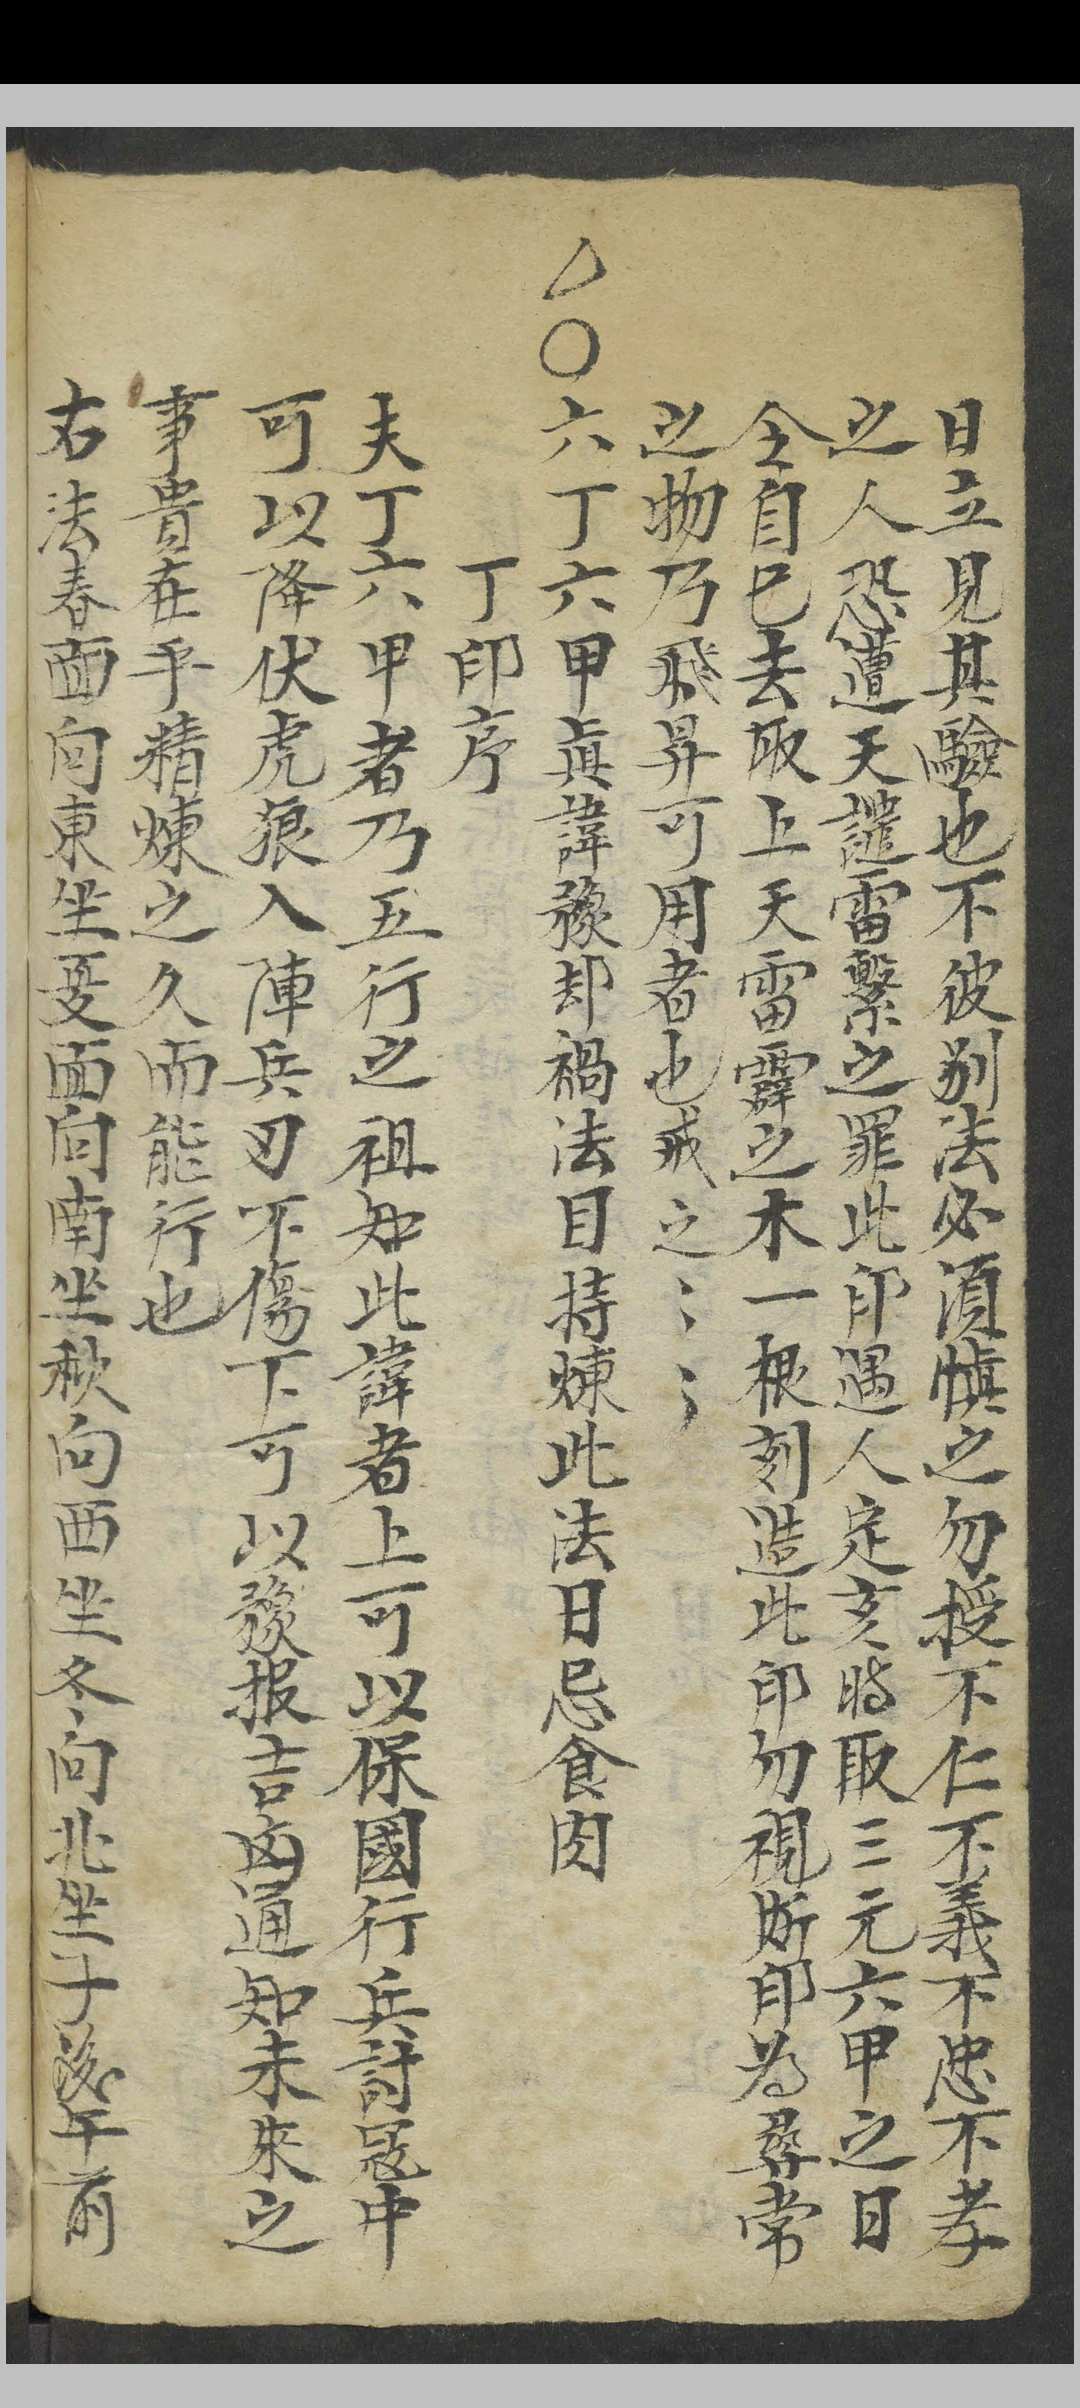 日立見其驗也不彼别法必湏慎之勿授不仁不義不忠不孝
之人恐遭天譴雷繫之罪此印遇人定亥時取三元六甲之日
仝自己去取上天雷霹之木一根刻造此印勿視斯印為尋常
之物乃飛昇可用者也戒之〻〻
△〇六丁六甲真諱豫却禍法目持煉此法日忌食肉
丁印序
夫丁六甲者乃五行之祖知此諱者上可以保國行兵討冦中
可以降伏虎狼入陣兵刃不傷下可以豫报吉凶通知未來之
事貴在乎精煉之久而能行也
右法春面向東坐夏面向南坐秋向西坐冬向北坐子後午前